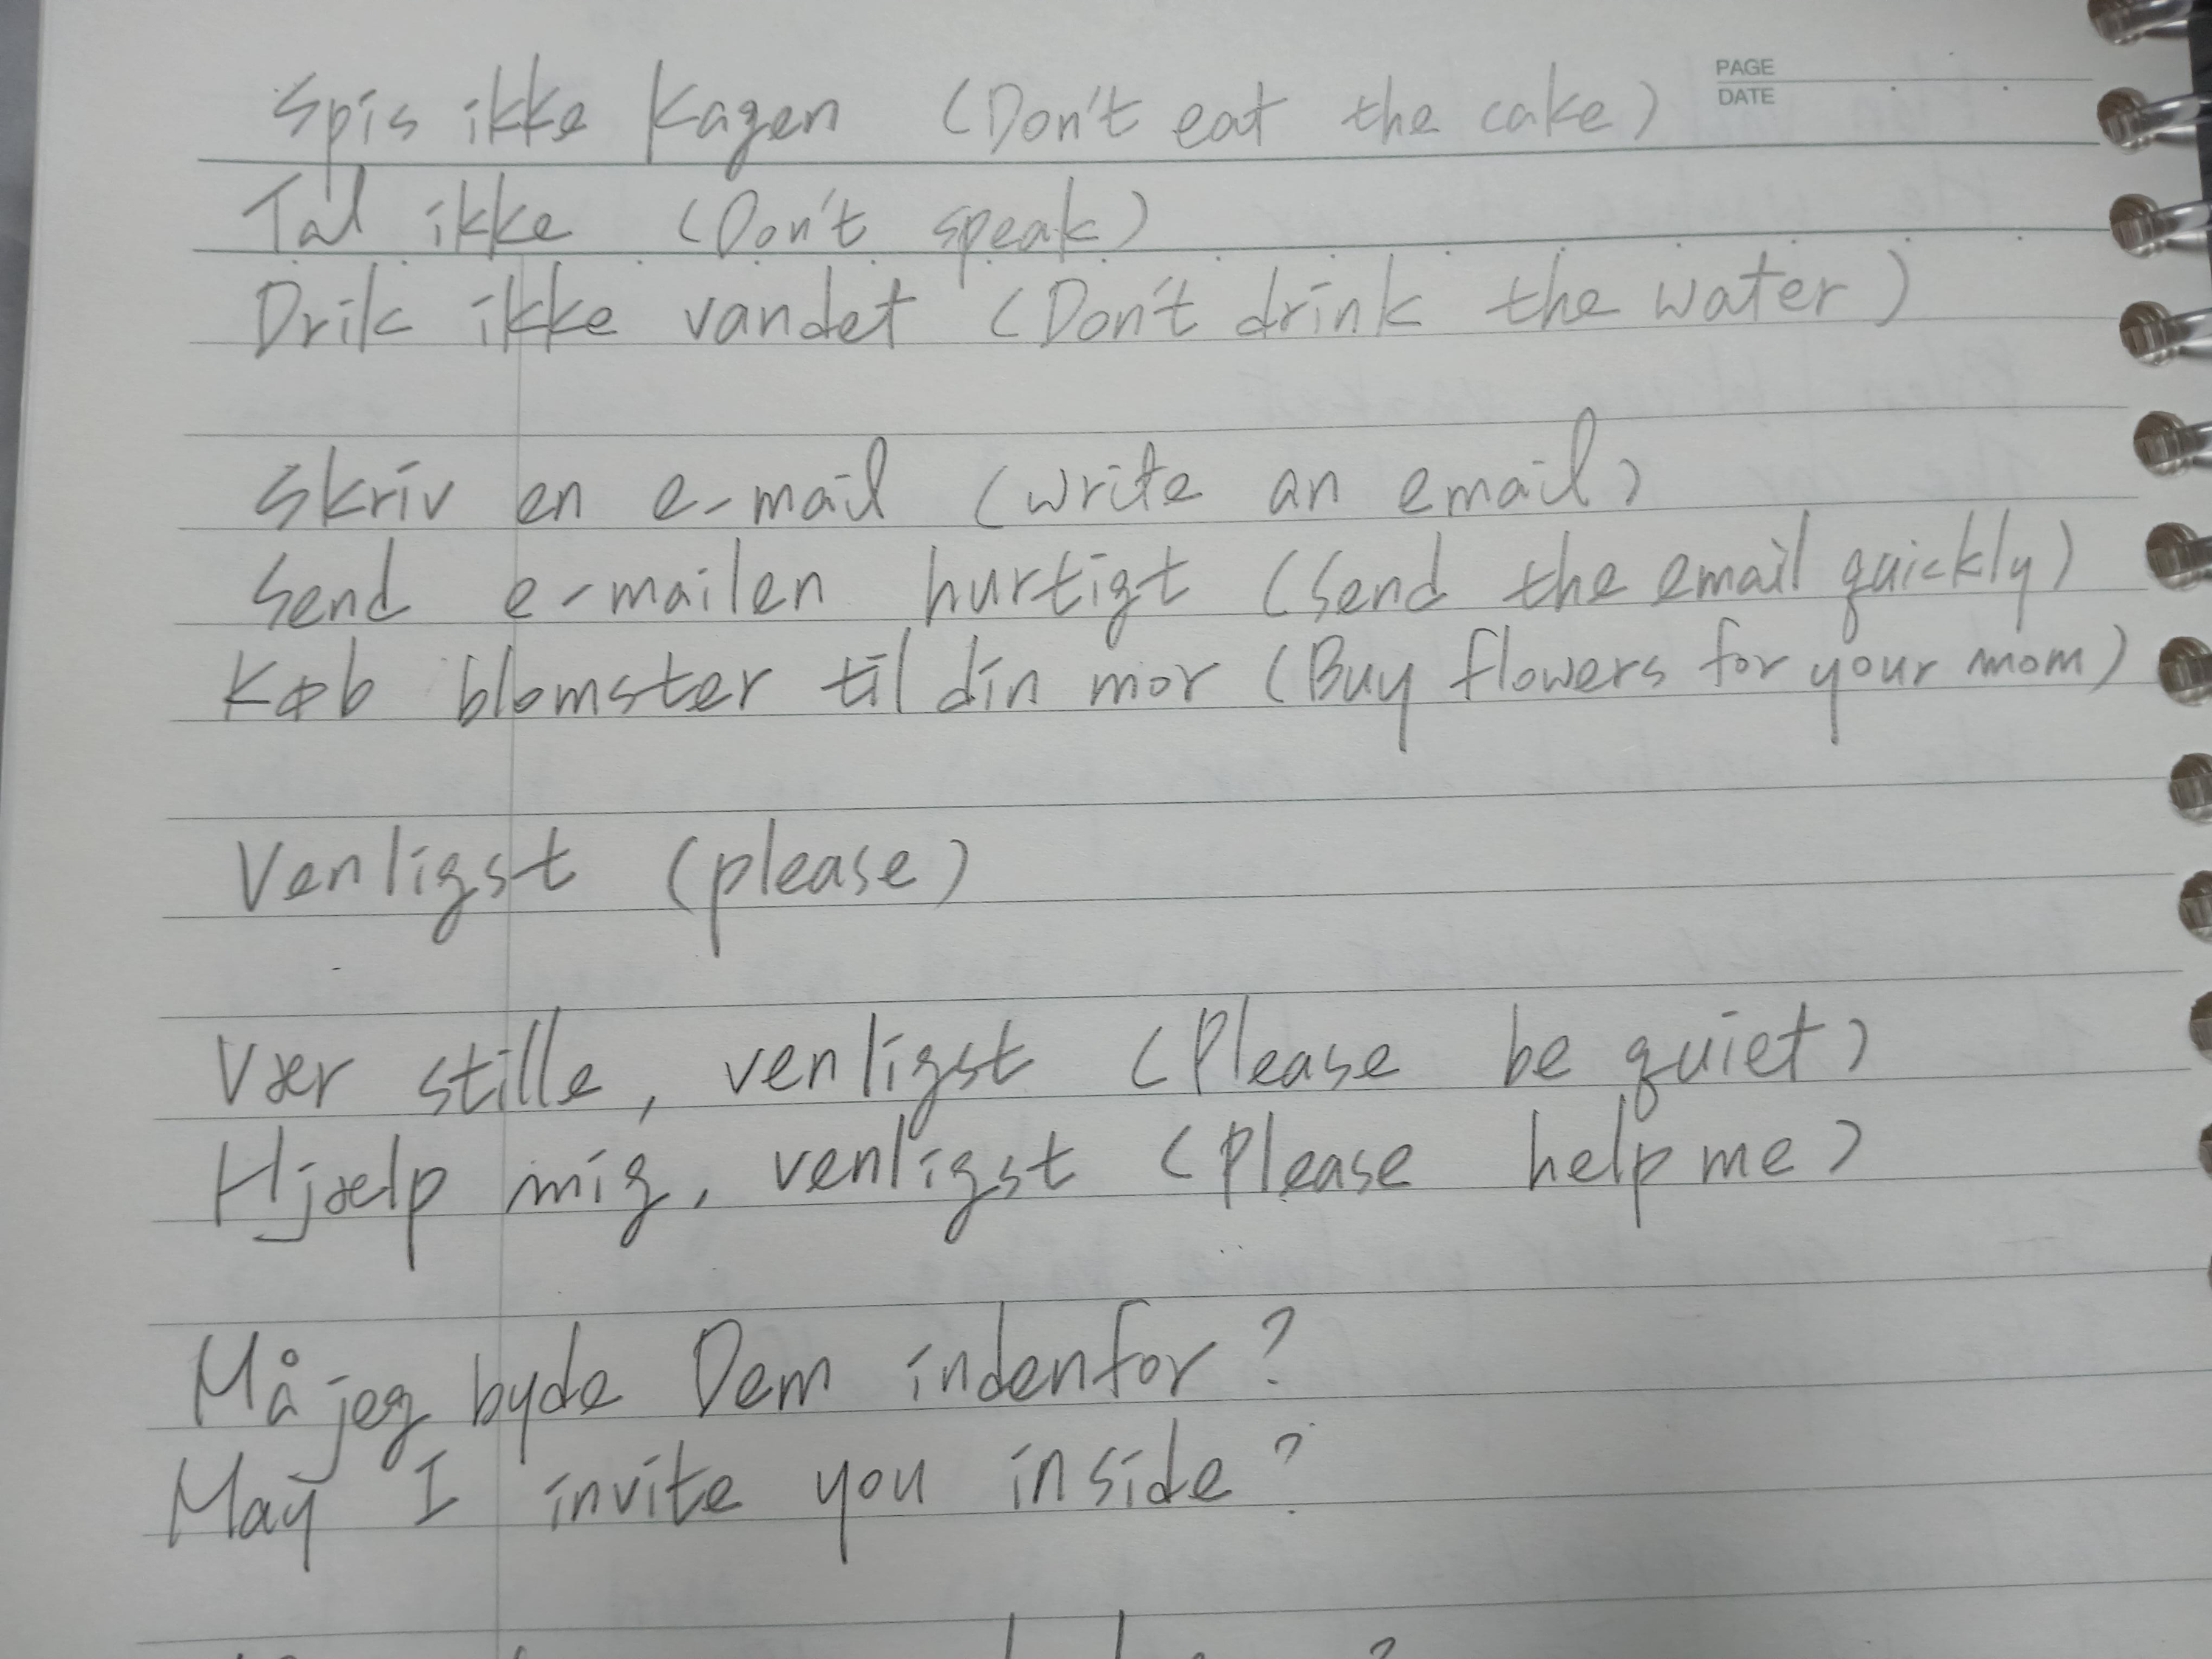 PAGE
DATE
Spis ikke kagen (Don't eat the cake)
Tal ikke (Don't speak)
Drik ikke vandet (Don't drink the water)
Skriv en e-mail (write an email)
Send e-mailen hurtigt (Send the email quickly)
Køb blomster til din mor (Buy flowers for your mom)
Venligst (please)
Vær stille, venligst (Please be quiet)
Hjælp mig, venligst (Please help me)
Må jeg byde Dem indenfor?
May I invite you inside?